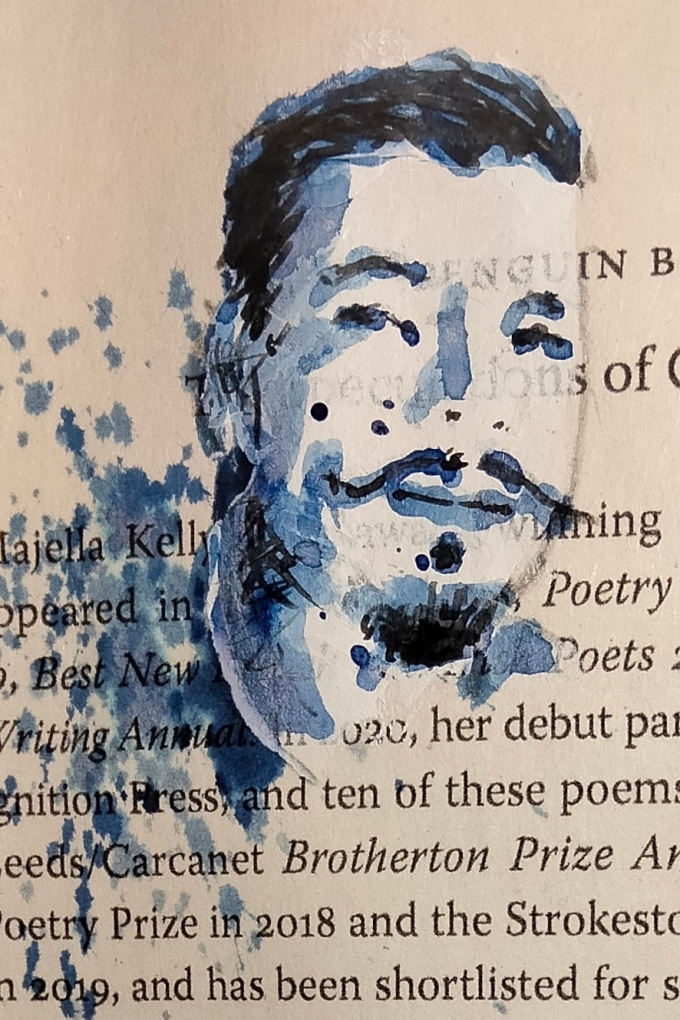 PENGUIN B
The Speculations of C
Majella Kelly award-winning
appeared in Poetry
o, Best New Poets 2
Writing Annual. In 2020, her debut pam
gnition Press, and ten of these poems
Leeds/Carcanet Brotherton Prize An
Poetry Prize in 2018 and the Strokesto
n 2019, and has been shortlisted for s